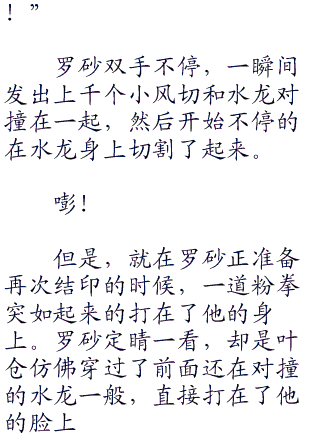 ！”
罗砂双手不停，一瞬间
发出上千个小风切和水龙对
撞在一起，然后开始不停的
在水龙身上切割了起来。
嘭！
但是，就在罗砂正准备
再次结印的时候，一道粉拳
突如起来的打在了他的身
上。罗砂定晴一看，却是叶
仓仿佛穿过了前面还在对撞
的水龙一般，直接打在了他
的脸上